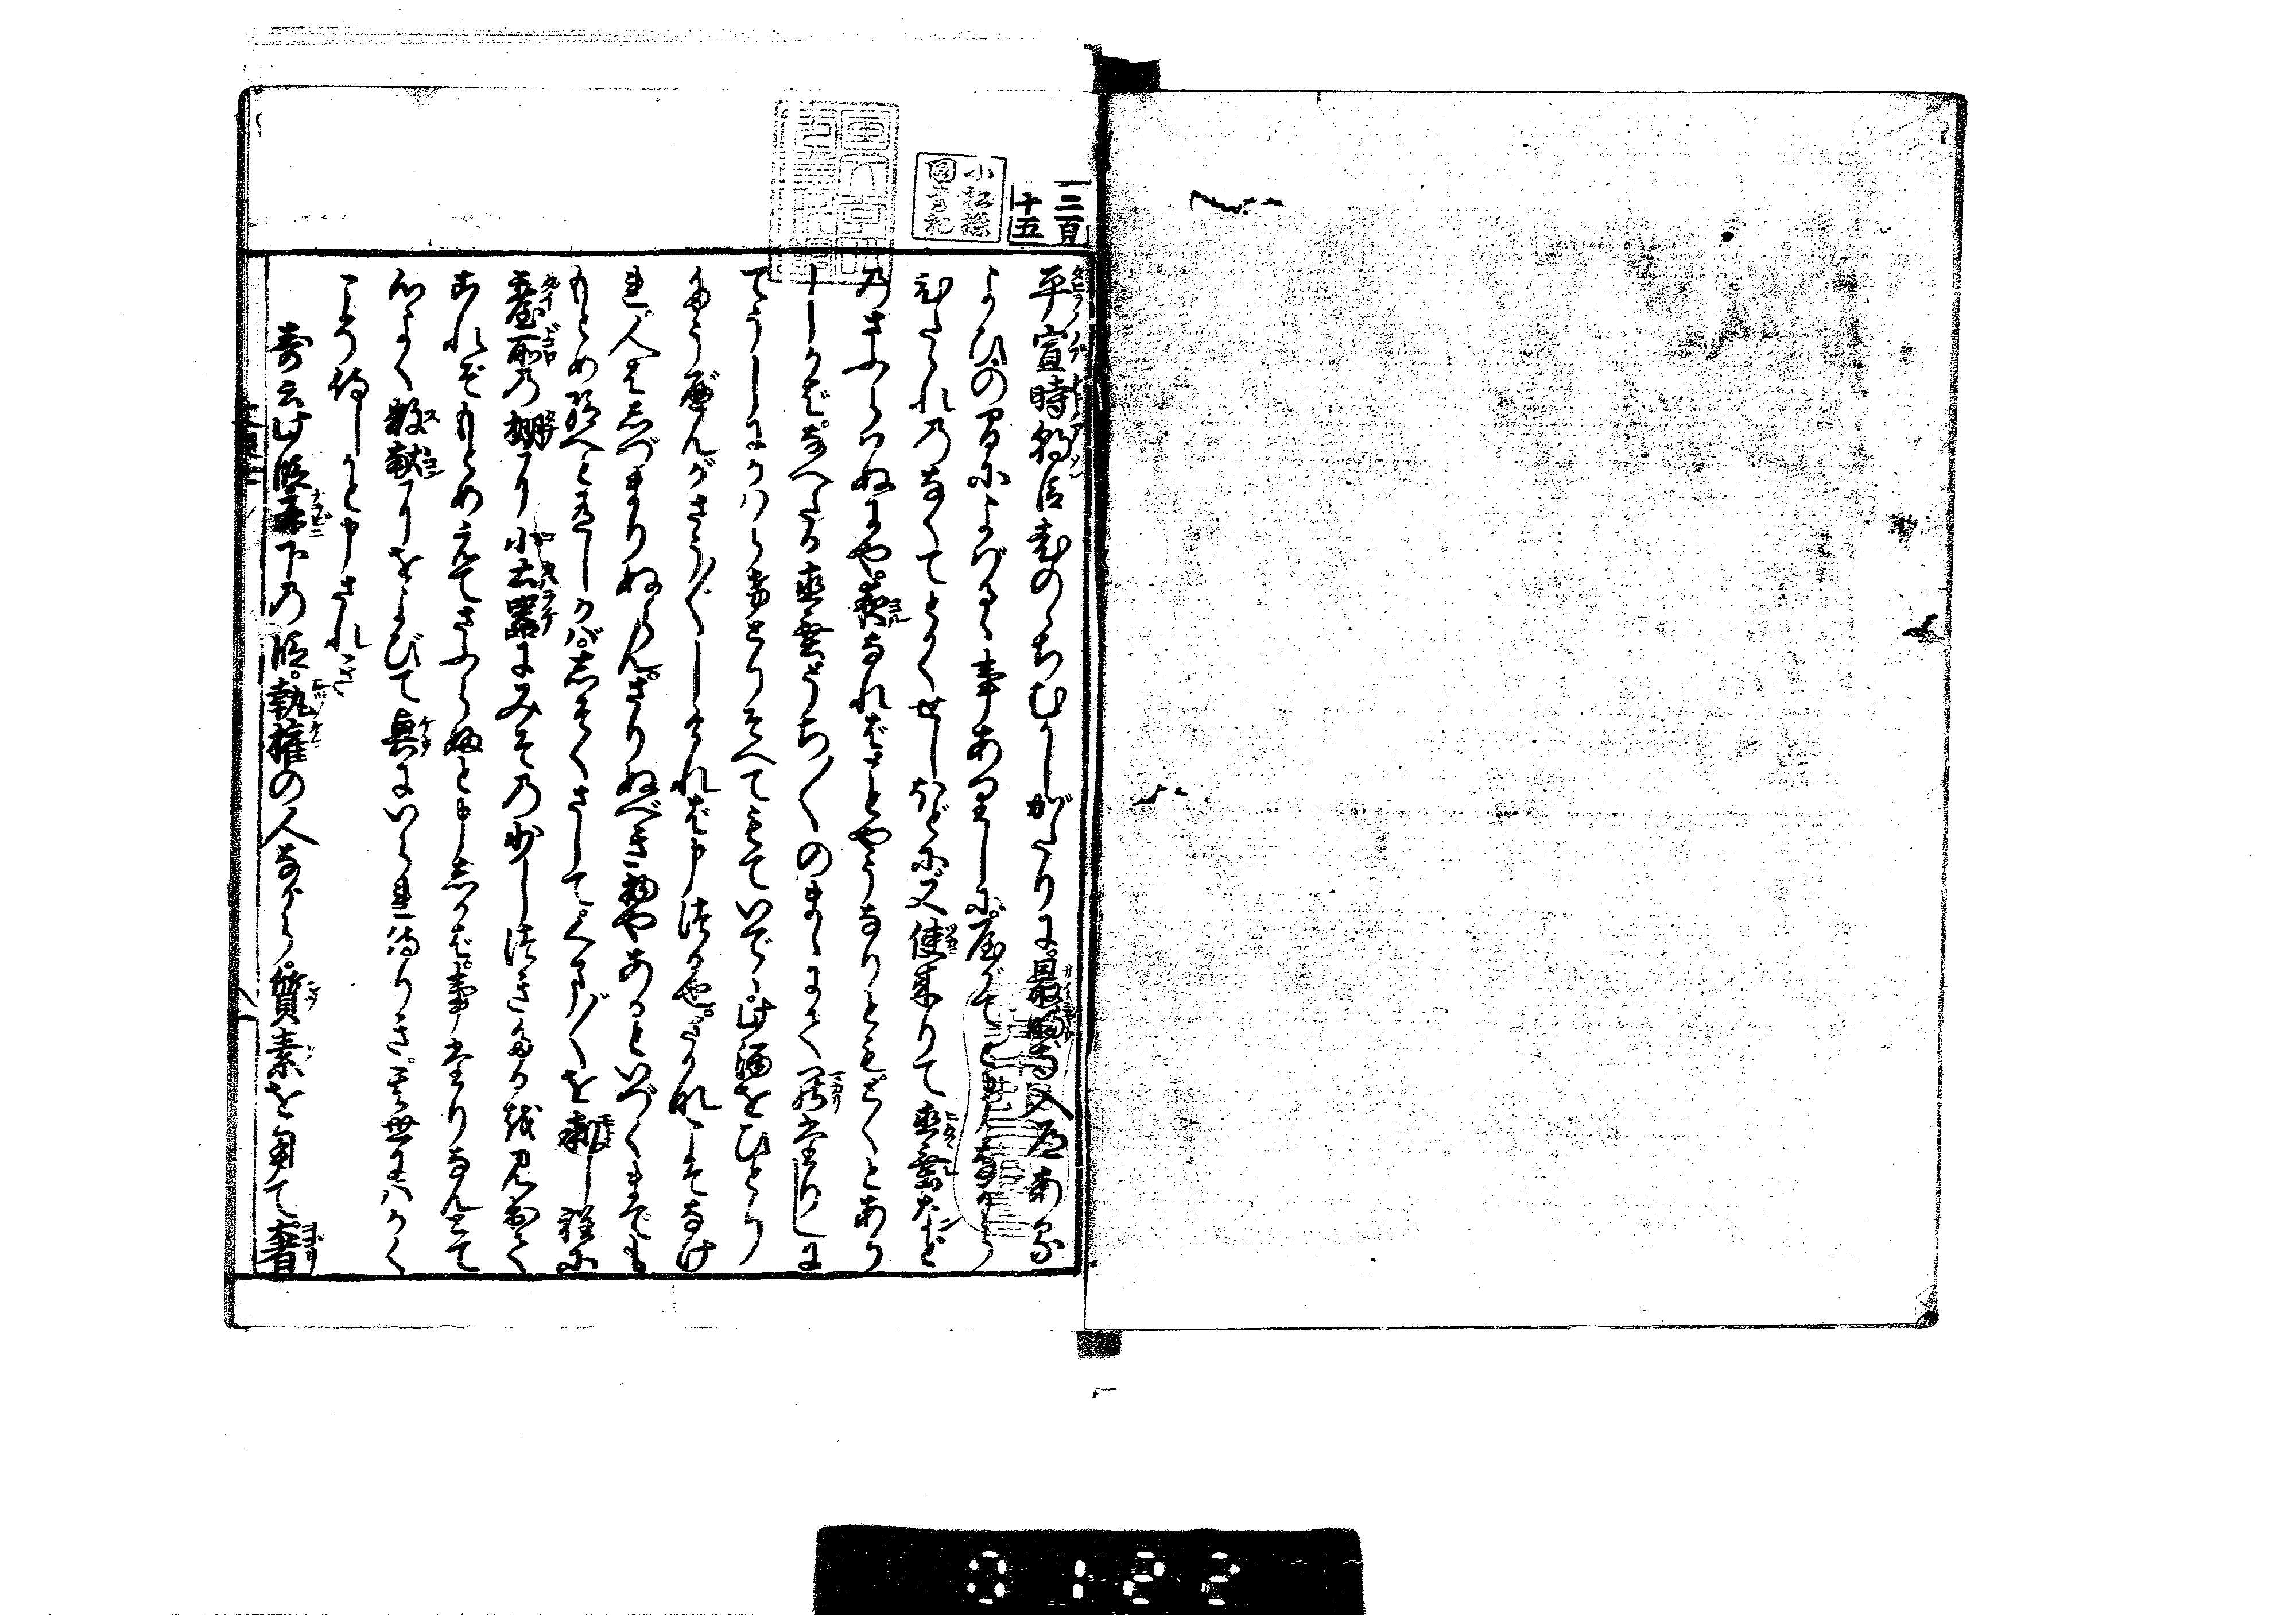 二百
十五
平宣時朝臣老のゝちむかしがたりに。最明寺入道或よ
よひの間によばるゝ事ありしに。やがてと申ながら
ひたゝれのなくてとかくせしほどに又使来りて直垂など
のさふらはぬにや。夜なればことやうなりともとくとあり
しかば。なへたる直垂うち〱のまゝにてまかりたりしに
てうしにかはらけとりそへてもていでゝ。此酒をひとり
たうべんがさう〲しければ申つる也。さかなこそなけ
れ人はしづまりぬらん。さりぬべき物やあるといづくまでも
もとめ給へとありしかば。しそくさして。くま〲を求し程に
臺所の棚に小土器にみその少しつきたるを見出て
これぞもとめえてさふらふと申しかば。事たりなんとて
心よく数献にをよびて興にいられ侍りき。其世にはかく
こそ侍しかと申されき
寿云此段并下の段。執権の人ながら。質素を用て。奢
小松操
0122